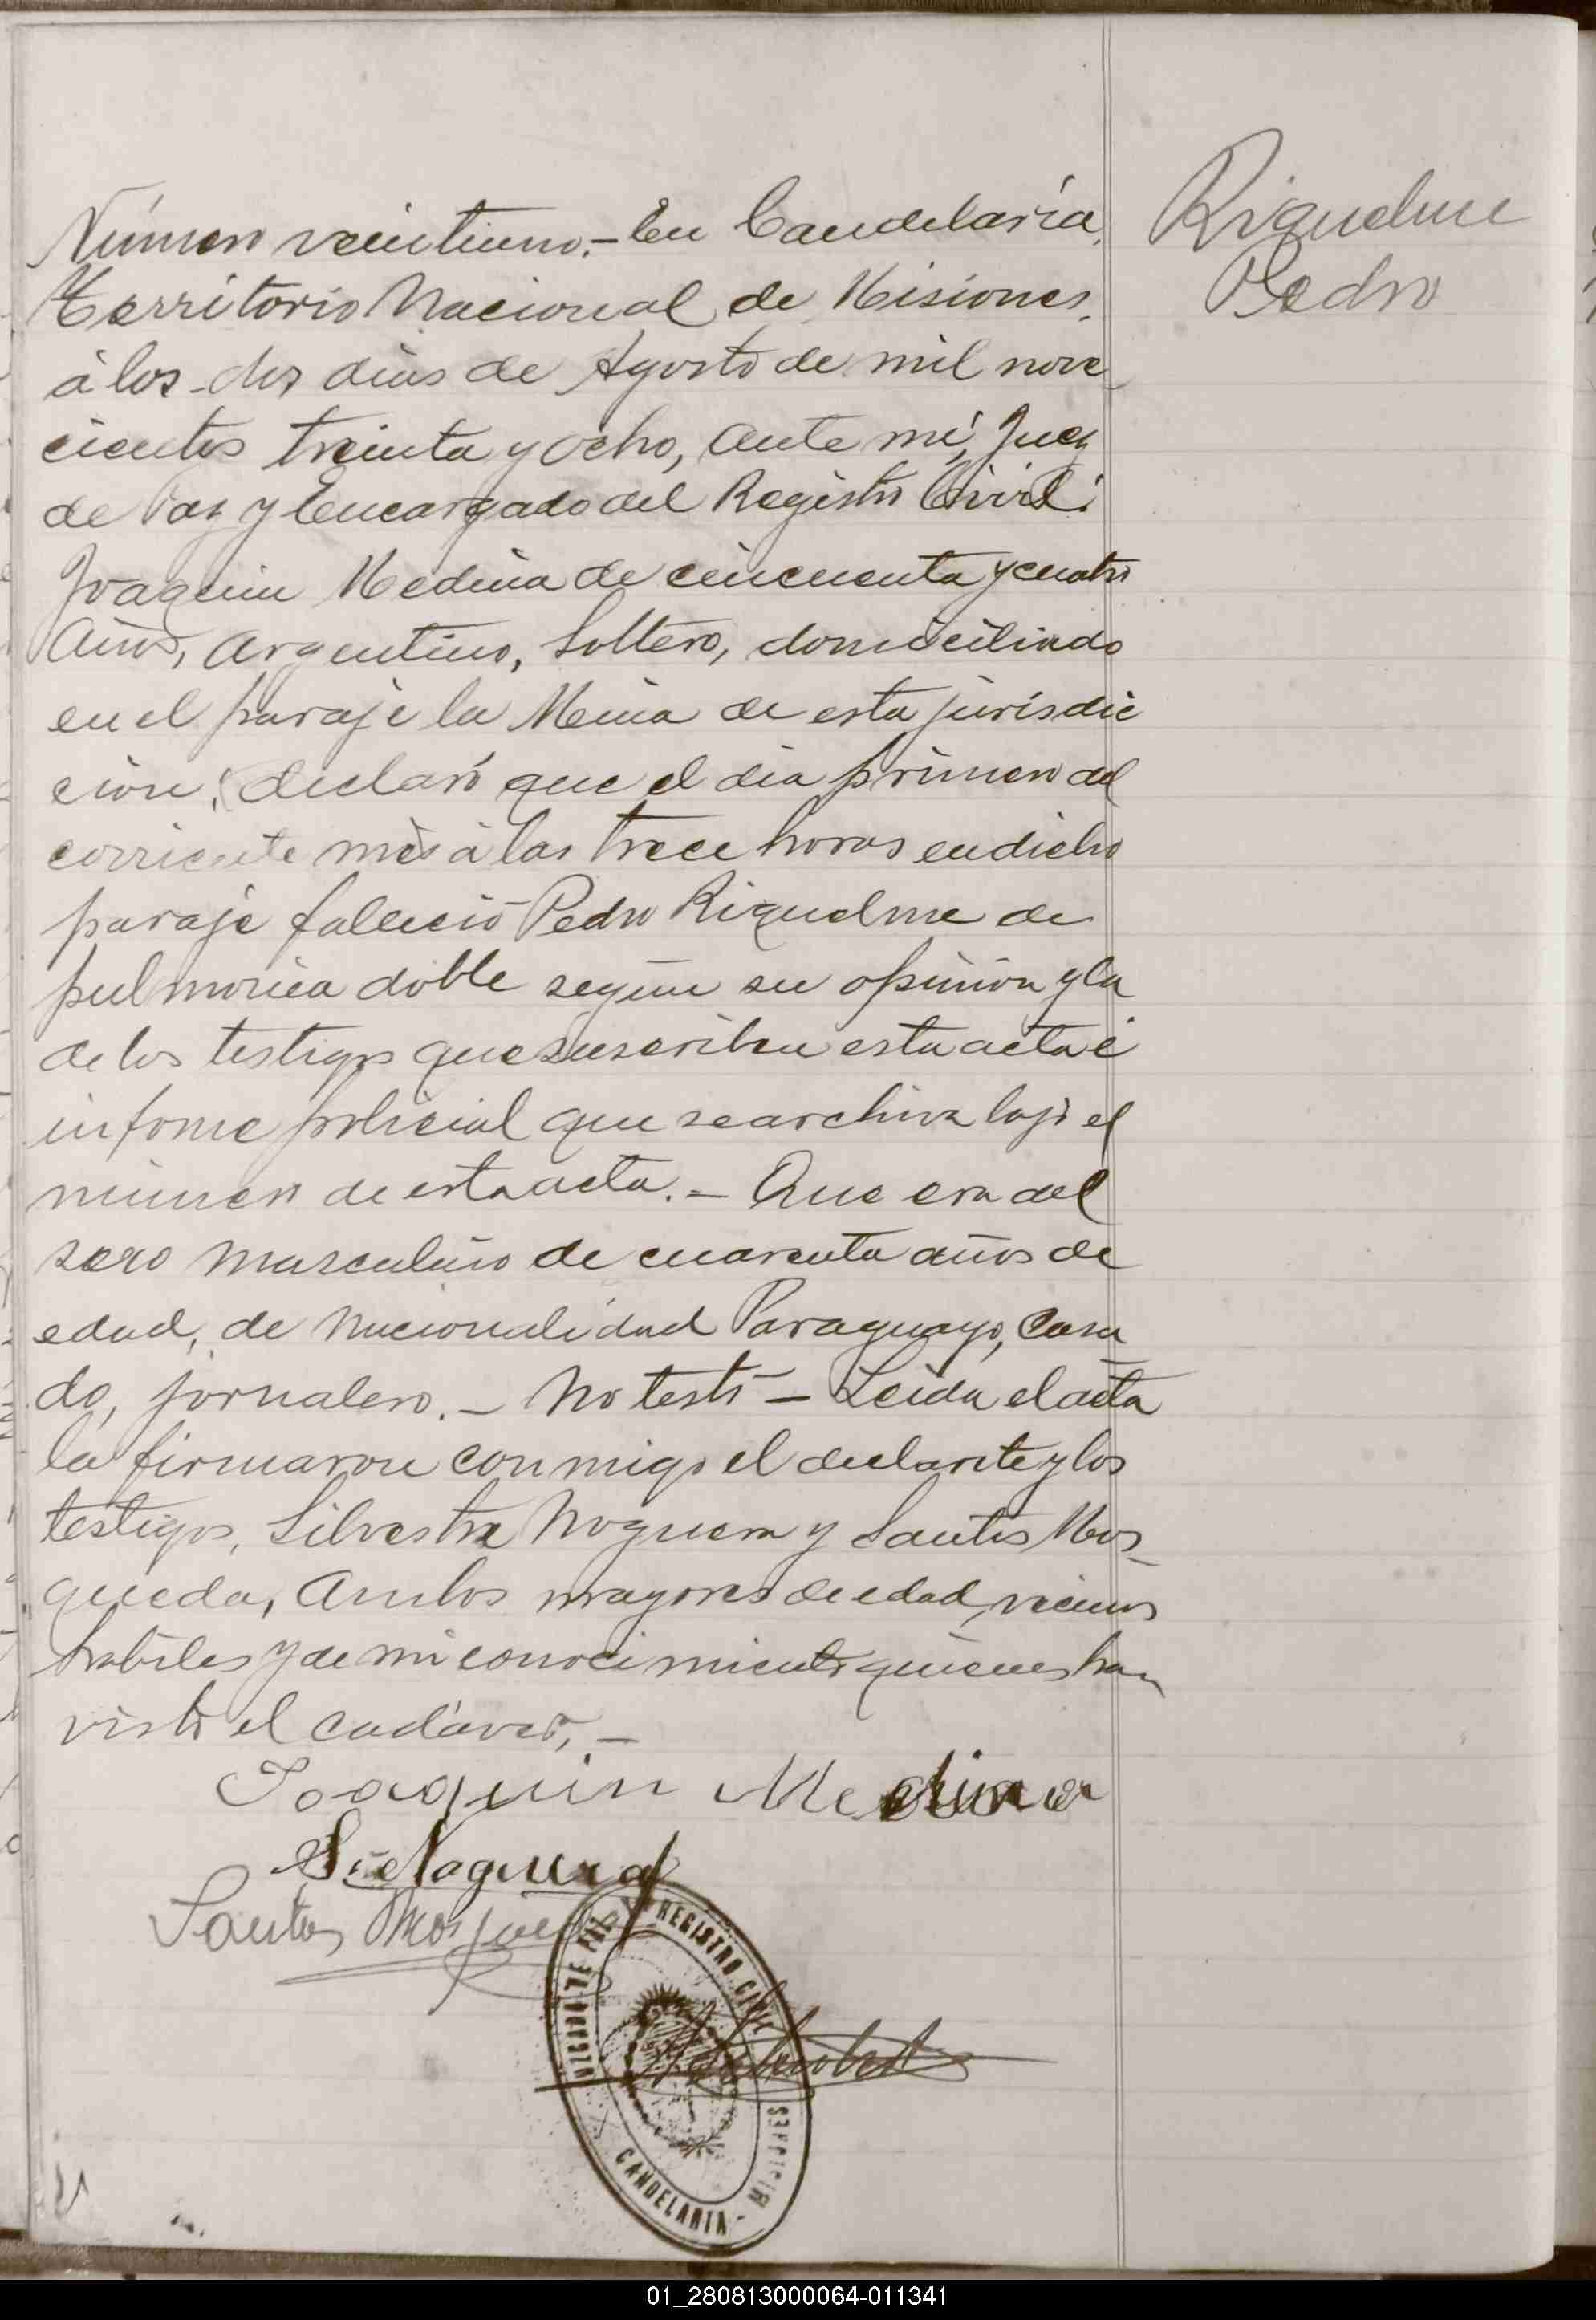 Riquelme
Pedro
Número veintiuno.- En Candelaria,
Territorio Nacional de Misiones,
á los dos dias de Agosto de mil nove
cientos treinta y ocho, ante mí, Juez
de Paz y Encargado del Registro Civil:
Joaquin Medina de cincuenta y cuatro
años, argentino, soltero, domiciliado
en el paraje la Mina de esta jurisdic
cion; declaró que el dia primero del
corriente mes á las trece horas en dicho
paraje falleció Pedro Riquelme de
pulmonia doble segun su opinion y la
de los testigos que suscriben esta acta é
informe policial que se archiva bajo el
número de esta acta.- Que era del
sexo masculino de cuarenta años de
edad, de nacionalidad Paraguayo, casa
do, jornalero.- No testó - Leida el acta
la firmaron conmigo el declarante y los
testigos, Silvestre Noguera y Santos Mos-
queda, ambos mayores de edad, vecinos
habiles y de mi conocimiento quienes han
visto el cadáver.-
Joaquin Medina
S. Noguera
Santos Mosqueda
JUZGADO DE PAZ Y REGISTRO CIVIL
CANDELARIA - MISIONES
01_280813000064-011341